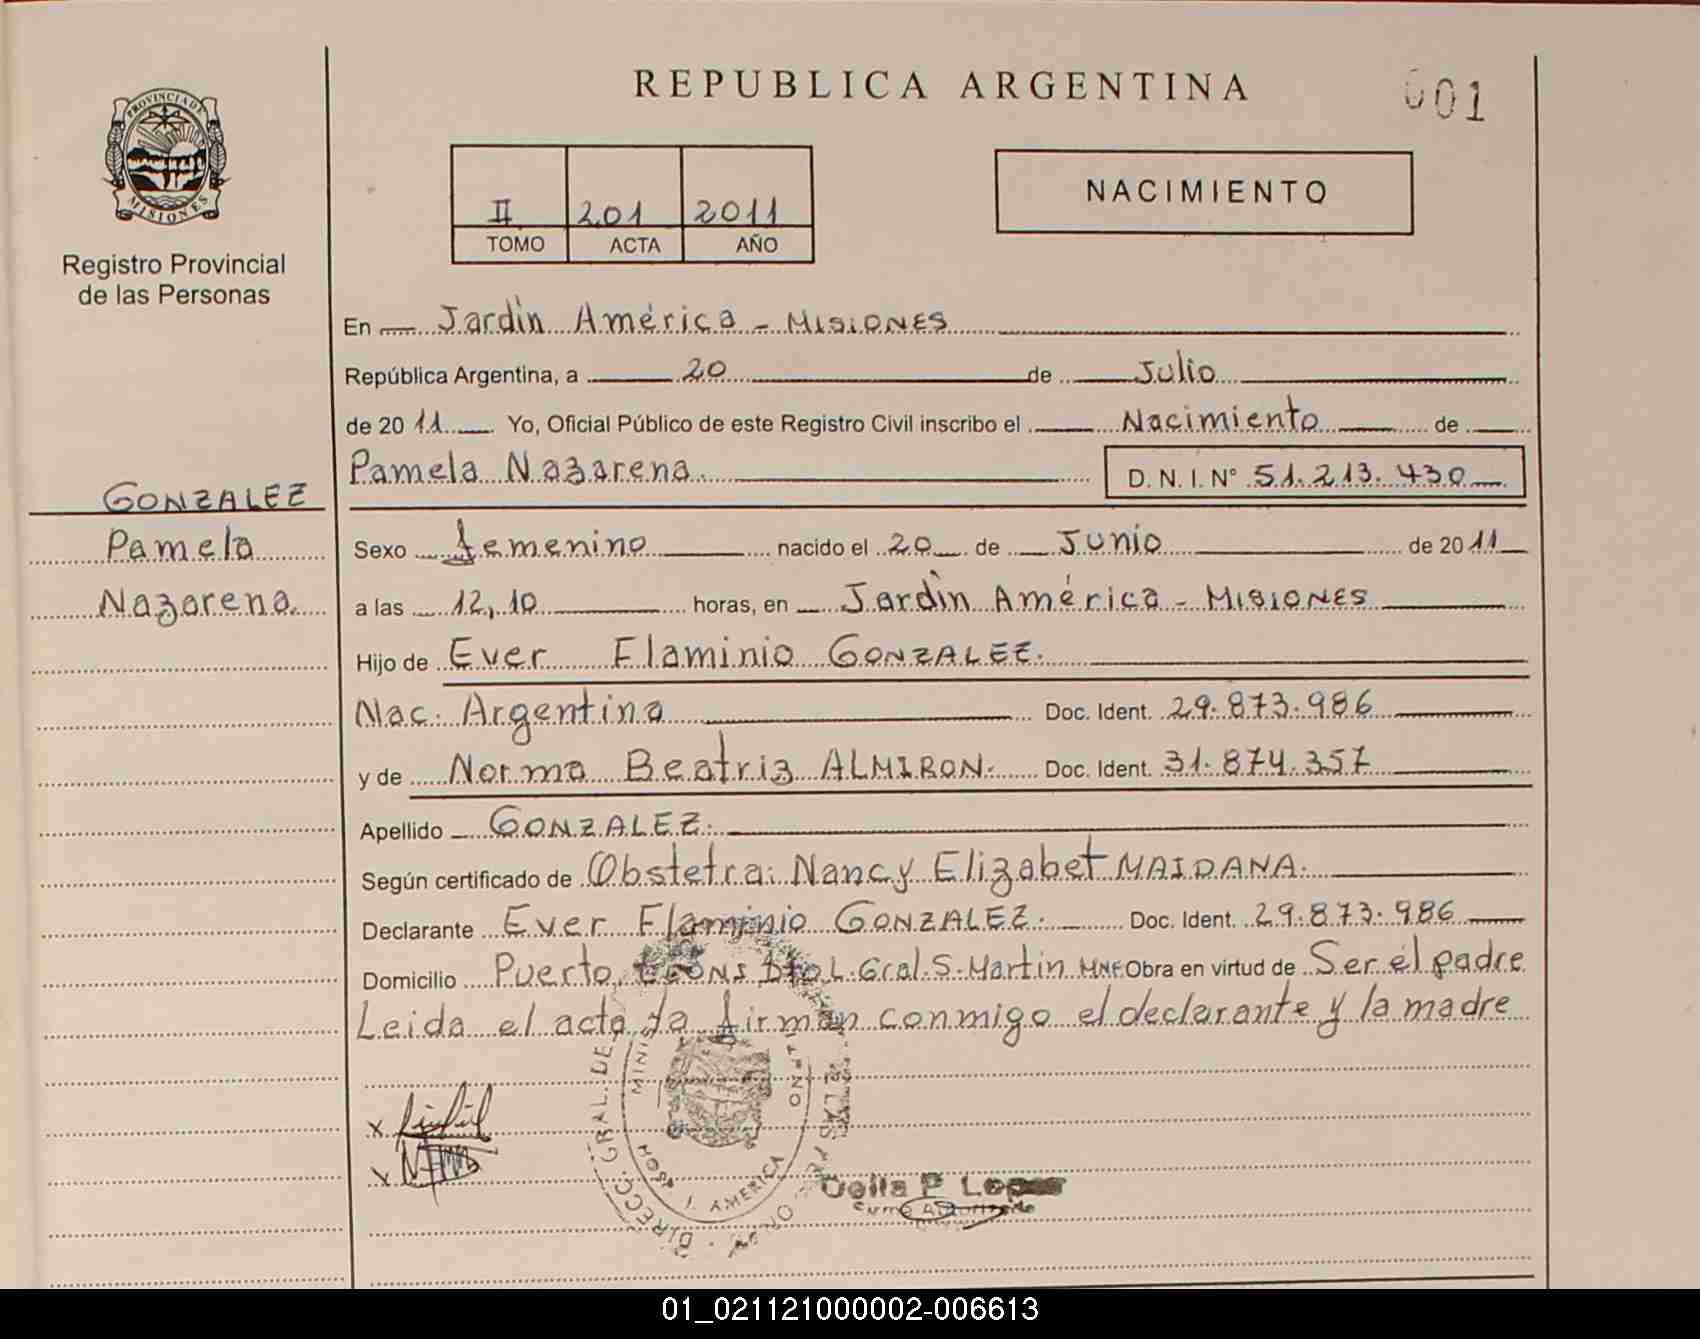 REPUBLICA ARGENTINA
001
PROVINCIA DE
MISIONES
Registro Provincial
de las Personas
II 201 2011
TOMO ACTA AÑO
NACIMIENTO
En Jardín América - MISIONES
República Argentina, a 20 de Julio
de 2011 Yo, Oficial Público de este Registro Civil inscribo el Nacimiento de
Pamela Nazarena. D. N. I. N° 51.213.430
GONZALEZ
Pamela
Nazarena.
Sexo femenino nacido el 20 de Junio de 2011
a las 12,10 horas, en Jardín América - MISIONES
Hijo de Ever Flaminio GONZALEZ.
Nac. Argentina Doc. Ident. 29.873.986
y de Norma Beatriz ALMIRON. Doc. Ident. 31.874.357
Apellido GONZALEZ.
Según certificado de Obstetra: Nancy Elizabet MAIDANA.
Declarante Ever Flaminio GONZALEZ. Doc. Ident. 29.873.986
Domicilio Puerto L. Gral. S. Martin Obra en virtud de Ser el padre
Leida el acta la firman conmigo el declarante y la madre
DIRECC. GRAL. DE
MINIS
AMERICA
Delia P. Lopez
Firma Autorizada
01_021121000002-006613